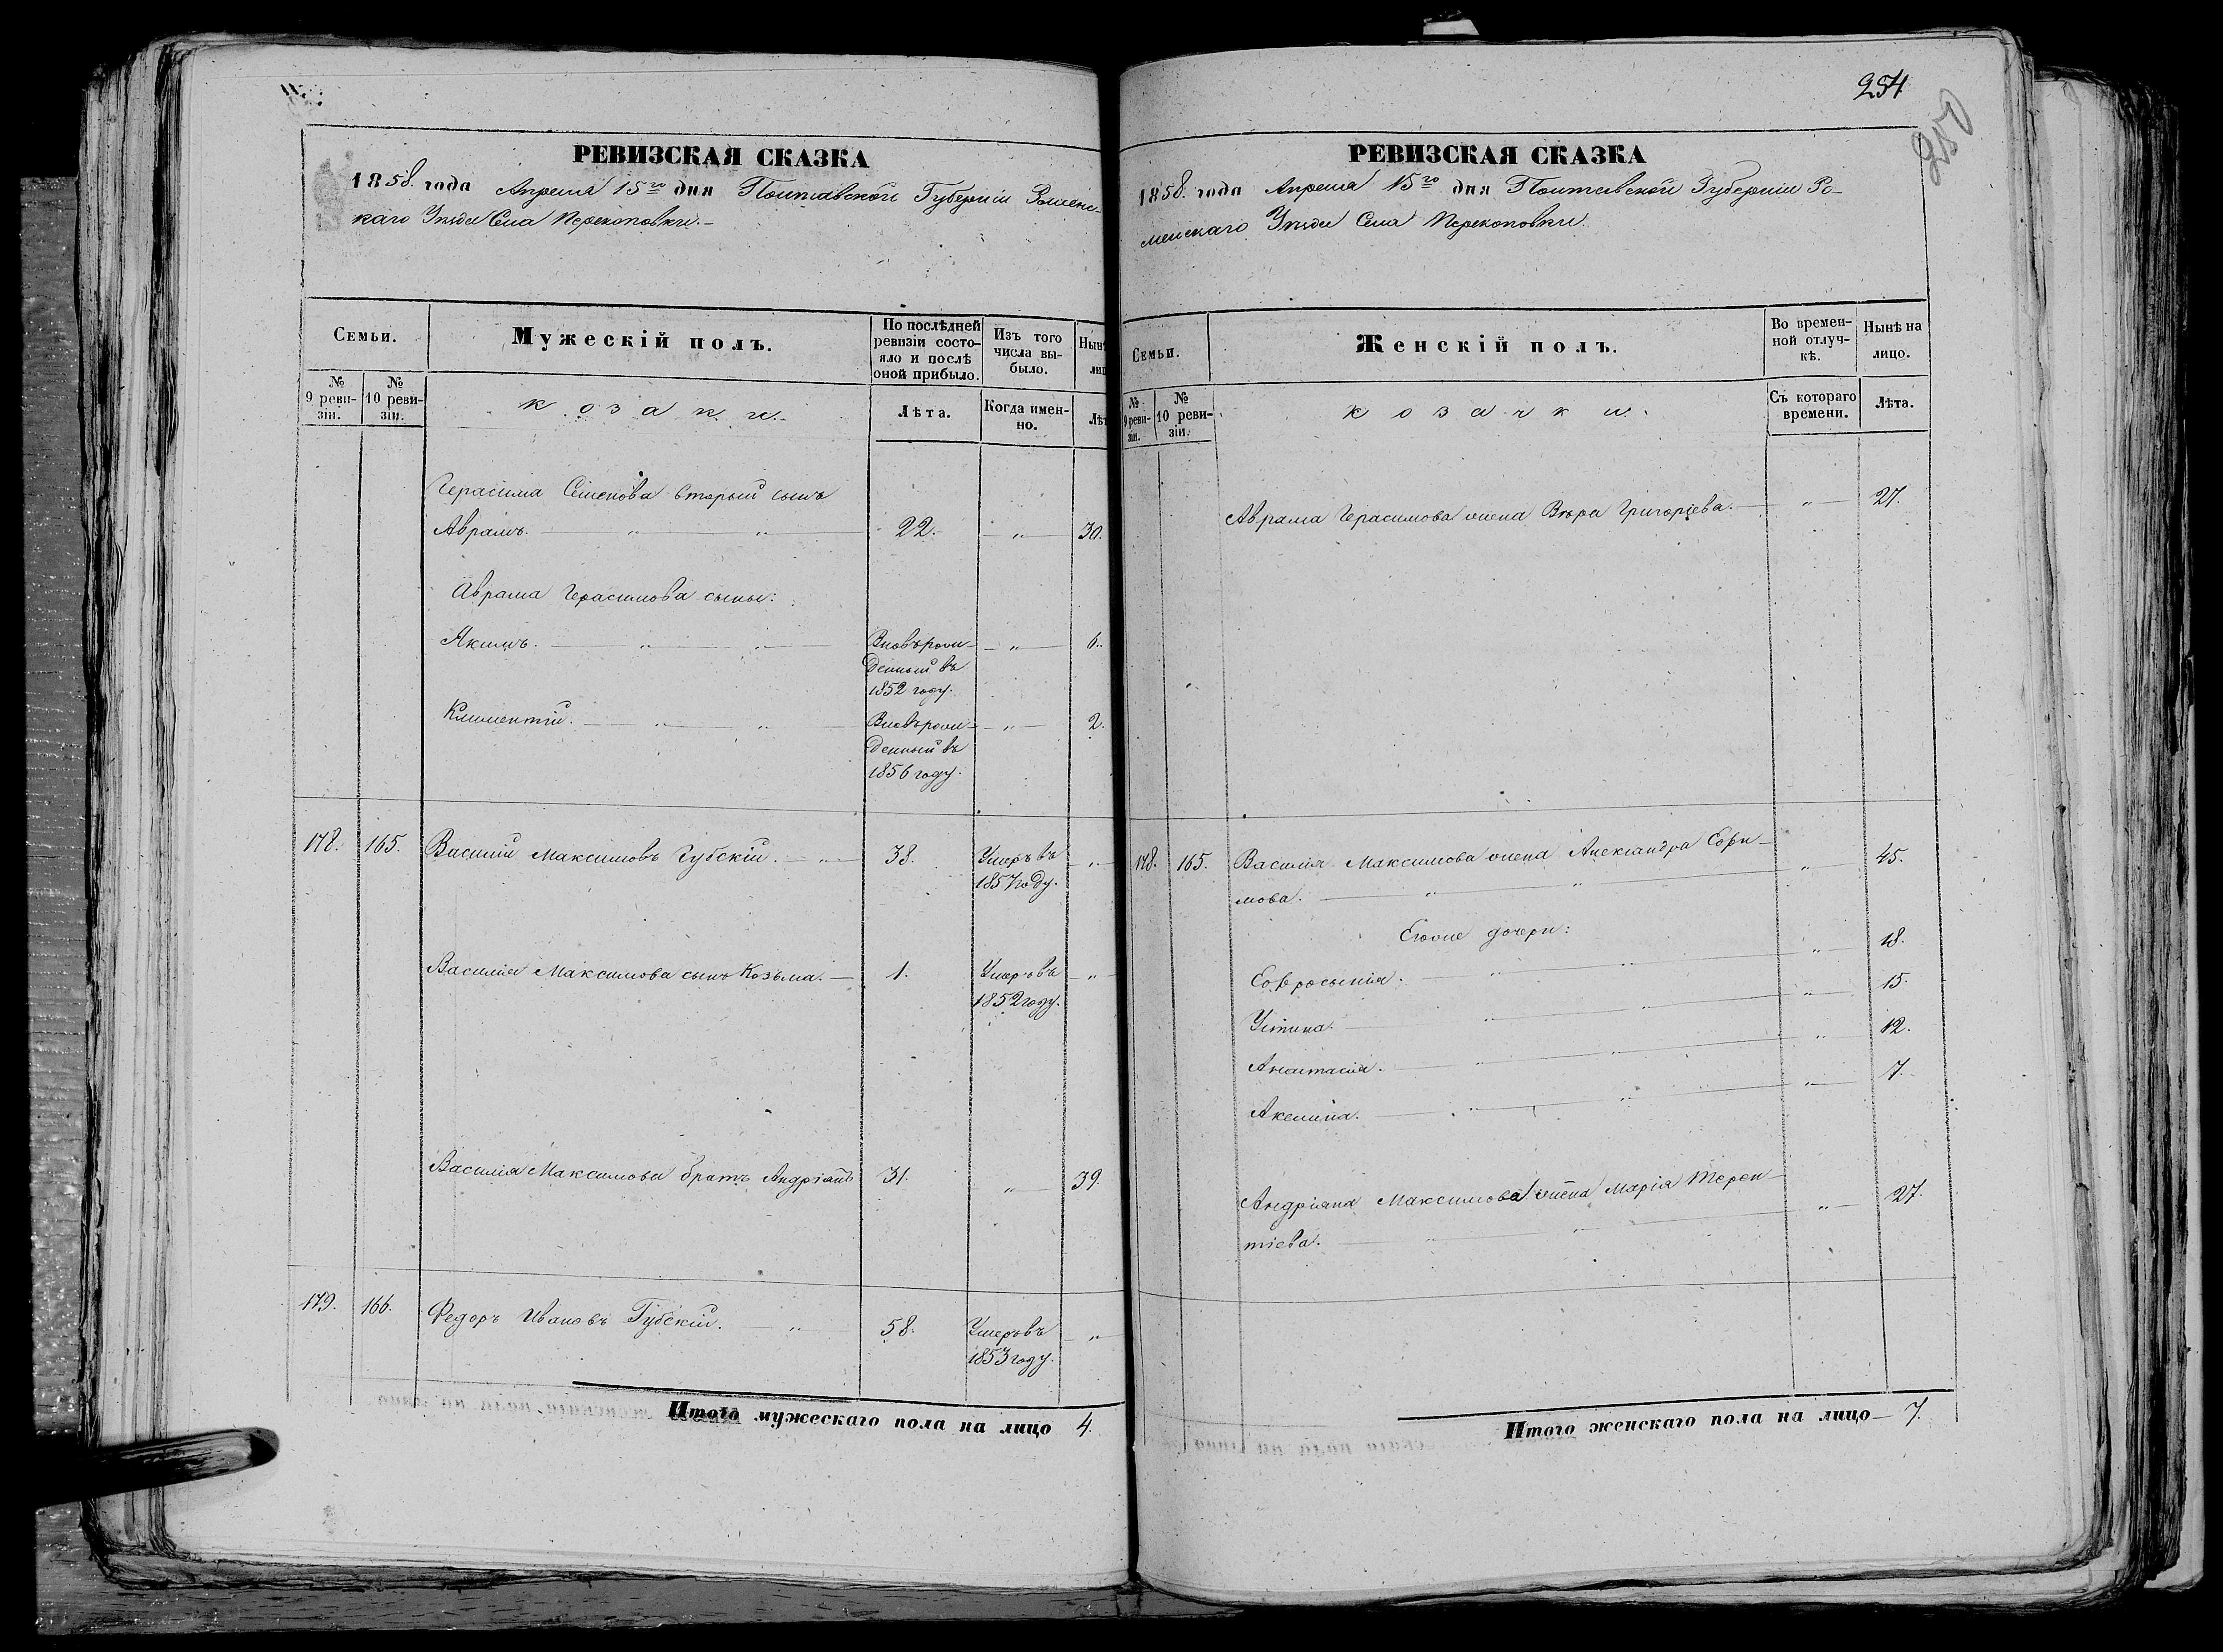 РЕВИЗСКАЯ СКАЗКА
1858. года Апреля 15го дня Полтавской Губерніи Роменс-
каго Уѣзда Села Перекоповки.-
Семьи.
Мужескій полъ.
По послѣдней ревизіи состояло и послѣ оной прибыло.
Изъ того числа выбыло.
Нынѣ
лиц
№ 9 ревизіи.
№ 10 ревизіи.
козаки.
Лѣта.
Когда именно.
Лѣт
Герасима Семенова вторый сынъ
Аврамъ. — „ — „ — 22. — „ — 30.
Аврама Герасимова сыны:
Акимъ. — „ — „ — Вновьрож- — „ — 6.
денный въ
1852 году.
Климентій. — „ — „ — Вновьрож- — „ — 2.
денный въ
1856 году.
178. 165. Василій Максимовъ Губскій. — „ — 38. Умеръ въ — „
1857 году.
Василія Максимова сынъ Козьма. — 1. Умеръ въ — „
1852 году.
Василія Максимова братъ Андріанъ 31. „ — 39.
179. 166. Федоръ Ивановъ Губскій. — „ 58. Умеръ въ — „
1853 году.
Итого мужескаго пола на лицо 4.
254
250
РЕВИЗСКАЯ СКАЗКА
1858. года Апреля 15го дня Полтавской Губерніи Ро-
менскаго Уѣзда Села Перекоповки.
Семьи.
Женскій полъ.
Во временной отлучкѣ.
Нынѣ на лицо.
№ 9 ревизіи.
№ 10 ревизіи.
козачки.
Съ котораго времени.
Лѣта.
Аврама Герасимова жена Вѣра Григоріева. — „ — 27.
178. 165. Василія Максимова жена Александра Ефи- „ — 45.
мова. — „ — „
Егоже дочери:
Ефросынія. „ „ „ — 18.
Устина. — „ „ „ — 15.
Анастасія. — „ „ „ — 12.
Акелина. — „ „ „ — 7.
Андріана Максимова жена Марія Терен- „ — 27.
тіева. — „ „
Итого женскаго пола на лицо — 7.